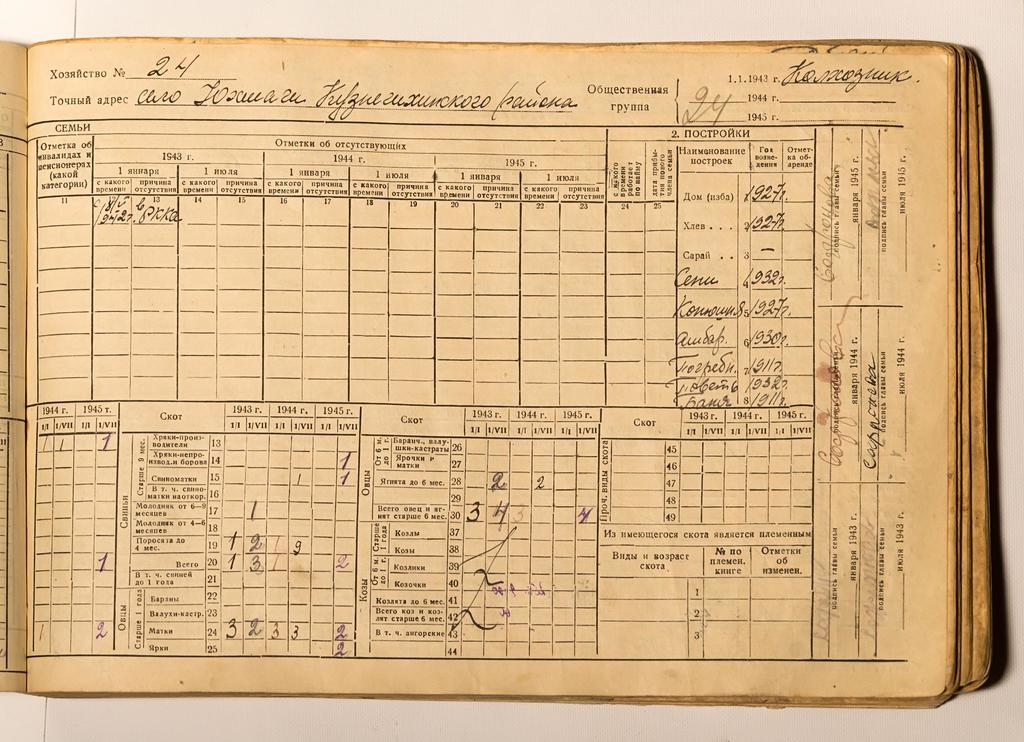 Хозяйство № 24
1.1.1943 г. Колхозник.
Точный адрес село Юхмачи Кузнечихинского района
Общественная группа
24 1944 г.
1945 г.
СЕМЬИ
Отметка об инвалидах и пенсионерах (какой категории)
Отметки об отсутствующих
1943 г. 1944 г. 1945 г.
1 января 1 июля 1 января 1 июля 1 января 1 июля
с какого времени причина отсутствия с какого времени причина отсутствия с какого времени причина отсутствия с какого времени причина отсутствия с какого времени причина отсутствия с какого времени причина отсутствия
с какого времени работает по найму
дата прибытия нового члена семьи
11 12 13 14 15 16 17 18 19 20 21 22 23 24 25
в РККА
2. ПОСТРОЙКИ
Наименование построек Год возведения Отметка об аренде
Дом (изба) 1 1927г.
Хлев . . . 2 1927г.
Сарай . . 3 —
Сени 4 1932г.
Конюшня 5 1927г.
Амбар. 6 1930г.
Погребн. 7 1911г.
Поветь 1932г.
Баня 8 1911г.
подпись главы семьи января 1945 г.
подпись главы семьи июля 1945 г.
подпись главы семьи января 1944 г.
подпись главы семьи июля 1944 г.
подпись главы семьи января 1943 г.
подпись главы семьи июля 1943 г.
1944 г. 1945 г. Скот 1943 г. 1944 г. 1945 г.
1/I 1/VII 1/I 1/VII 1/I 1/VII 1/I 1/VII 1/I 1/VII
Свиньи
Старше 9 мес.
1 1 Хряки-производители 13
Хряки-непроизвод. и борова 14 1
Свиноматки 15 1 1
В т. ч. свиноматки на откор. 16
Молодняк от 6—9 месяцев 17 1
Молодняк от 4—6 месяцев 18
Поросята до 4 мес. 19 1 2 1 9
1 Всего 20 1 3 1 2
В т. ч. свиней до 1 года 21
Овцы
Старше 1 года
Бараны 22
Валухи-кастр. 23
1 2 Матки 24 3 2 3 3 2
Ярки 25 2
Скот 1943 г. 1944 г. 1945 г.
1/I 1/VII 1/I 1/VII 1/I 1/VII
Овцы
От 6 м. до 1 г.
Баранч., валушки-кастраты 26
Ярочки и матки 27
Ягнята до 6 мес. 28 2 2
29
Всего овец и ягнят старше 6 мес. 30 3 4 3 4
Козы
Старше 1 года
Козлы 37
Козы 38
От 6 м. до 1 г.
Козлики 39
Козочки 40
Козлята до 6 мес. 41
Всего коз и козлят старше 6 мес. 42
В т. ч. ангорские 43
44
Скот 1943 г. 1944 г. 1945 г.
1/I 1/VII 1/I 1/VII 1/I 1/VII
Проч. виды скота
45
46
47
48
49
Из имеющегося скота является племенным
Виды и возраст скота № по племен. книге Отметки об изменен.
1
2
3